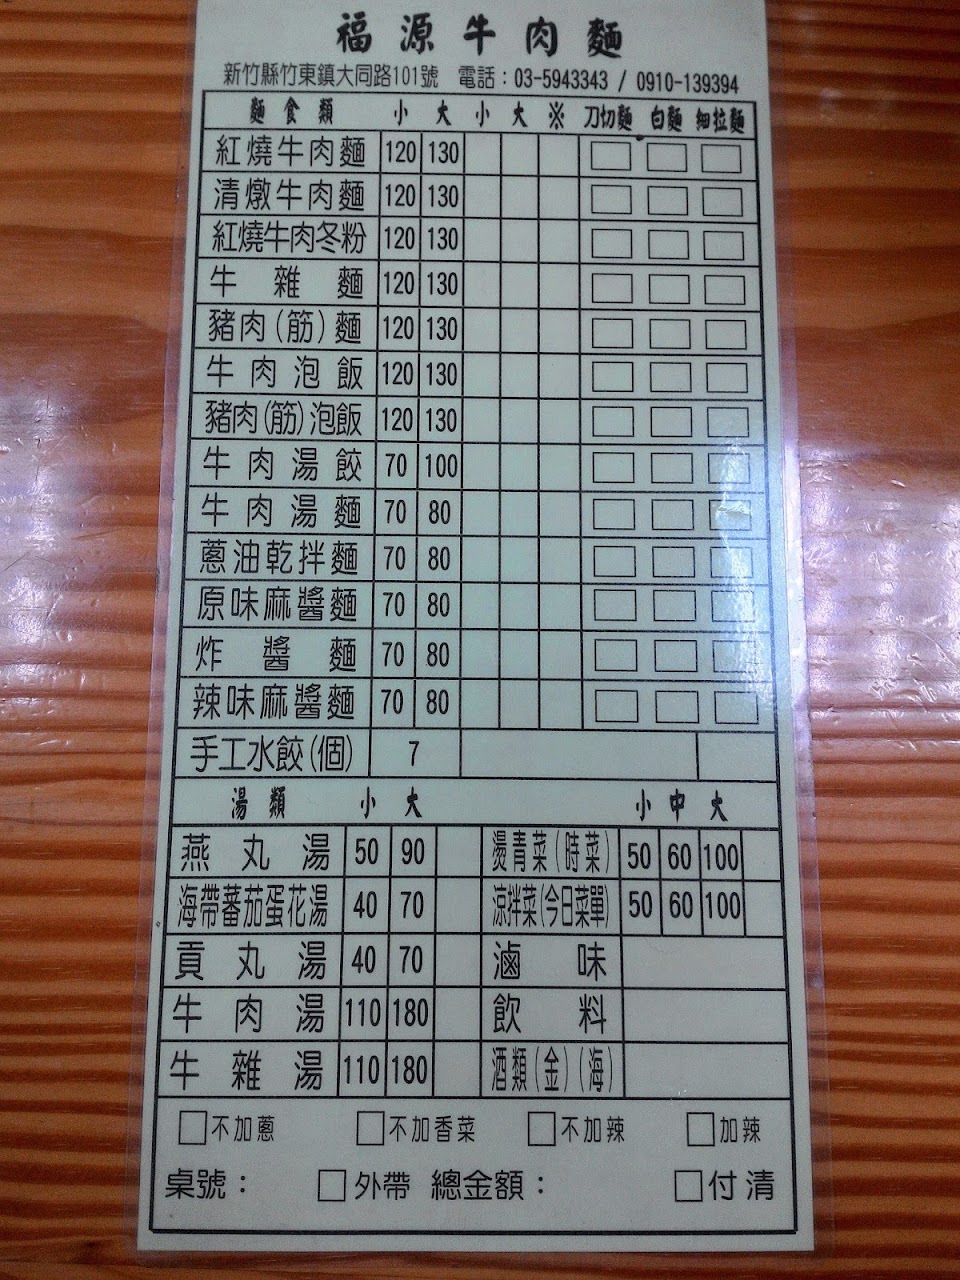 福源牛肉麵
新竹縣竹東鎮大同路101號 電話：03-5943343 / 0910-139394
麵食類 小 大 小 大 ※ 刀切麵 白麵 細拉麵
紅燒牛肉麵 120 130
清燉牛肉麵 120 130
紅燒牛肉冬粉 120 130
牛雜麵 120 130
豬肉(筋)麵 120 130
牛肉泡飯 120 130
豬肉(筋)泡飯 120 130
牛肉湯餃 70 100
牛肉湯麵 70 80
蔥油乾拌麵 70 80
原味麻醬麵 70 80
炸醬麵 70 80
辣味麻醬麵 70 80
手工水餃(個) 7
湯類 小 大 小 中 大
燕丸湯 50 90 燙青菜(時菜) 50 60 100
海帶蕃茄蛋花湯 40 70 涼拌菜(今日菜單) 50 60 100
貢丸湯 40 70 滷味
牛肉湯 110 180 飲料
牛雜湯 110 180 酒類(金)(海)
□不加蔥 □不加香菜 □不加辣 □加辣
桌號： □外帶 總金額： □付清